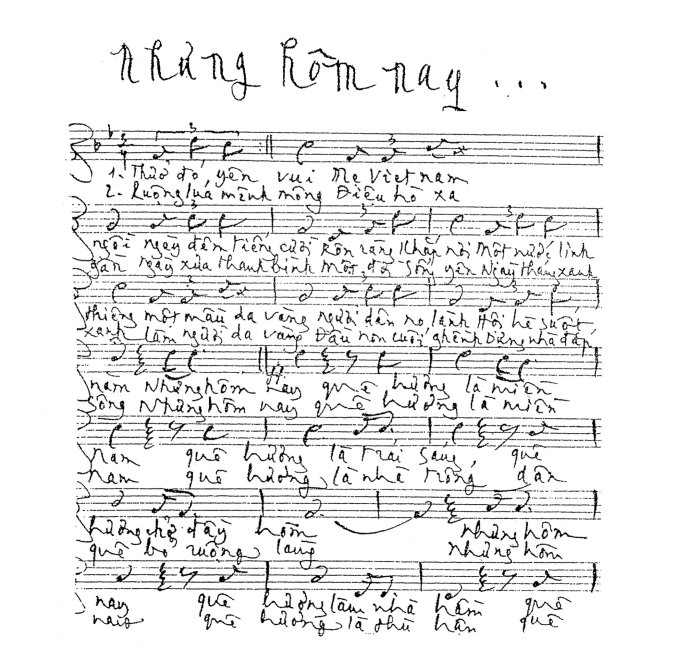 Những hôm nay ...
1. Thuở đó, yên vui Mẹ Việt nam
2. Ruộng lúa mênh mông Điệu hò xa
ngồi ngày đêm tiếng cười rộn ràng Khắp nơi Một nước linh
gần Ngày xưa thanh bình Một đời Sống yên Ngay thang xanh
thiêng một mầu da vàng người dân no lành Hội hè suốt
xanh làm người da vàng Đầu non cuối ghềnh Dựng nhà đắp
năm Những hôm nay quê hương là miền
Sông Những hôm nay quê hương là miền
nam quê hương là trại sáng, quê
nam quê hương là nhà trống, dân
hương từ đây hôm những hôm
quê bỏ ruộng lang những hôm
nay quê hương làm nhà hầm quê
nay quê hương là thù hận quê